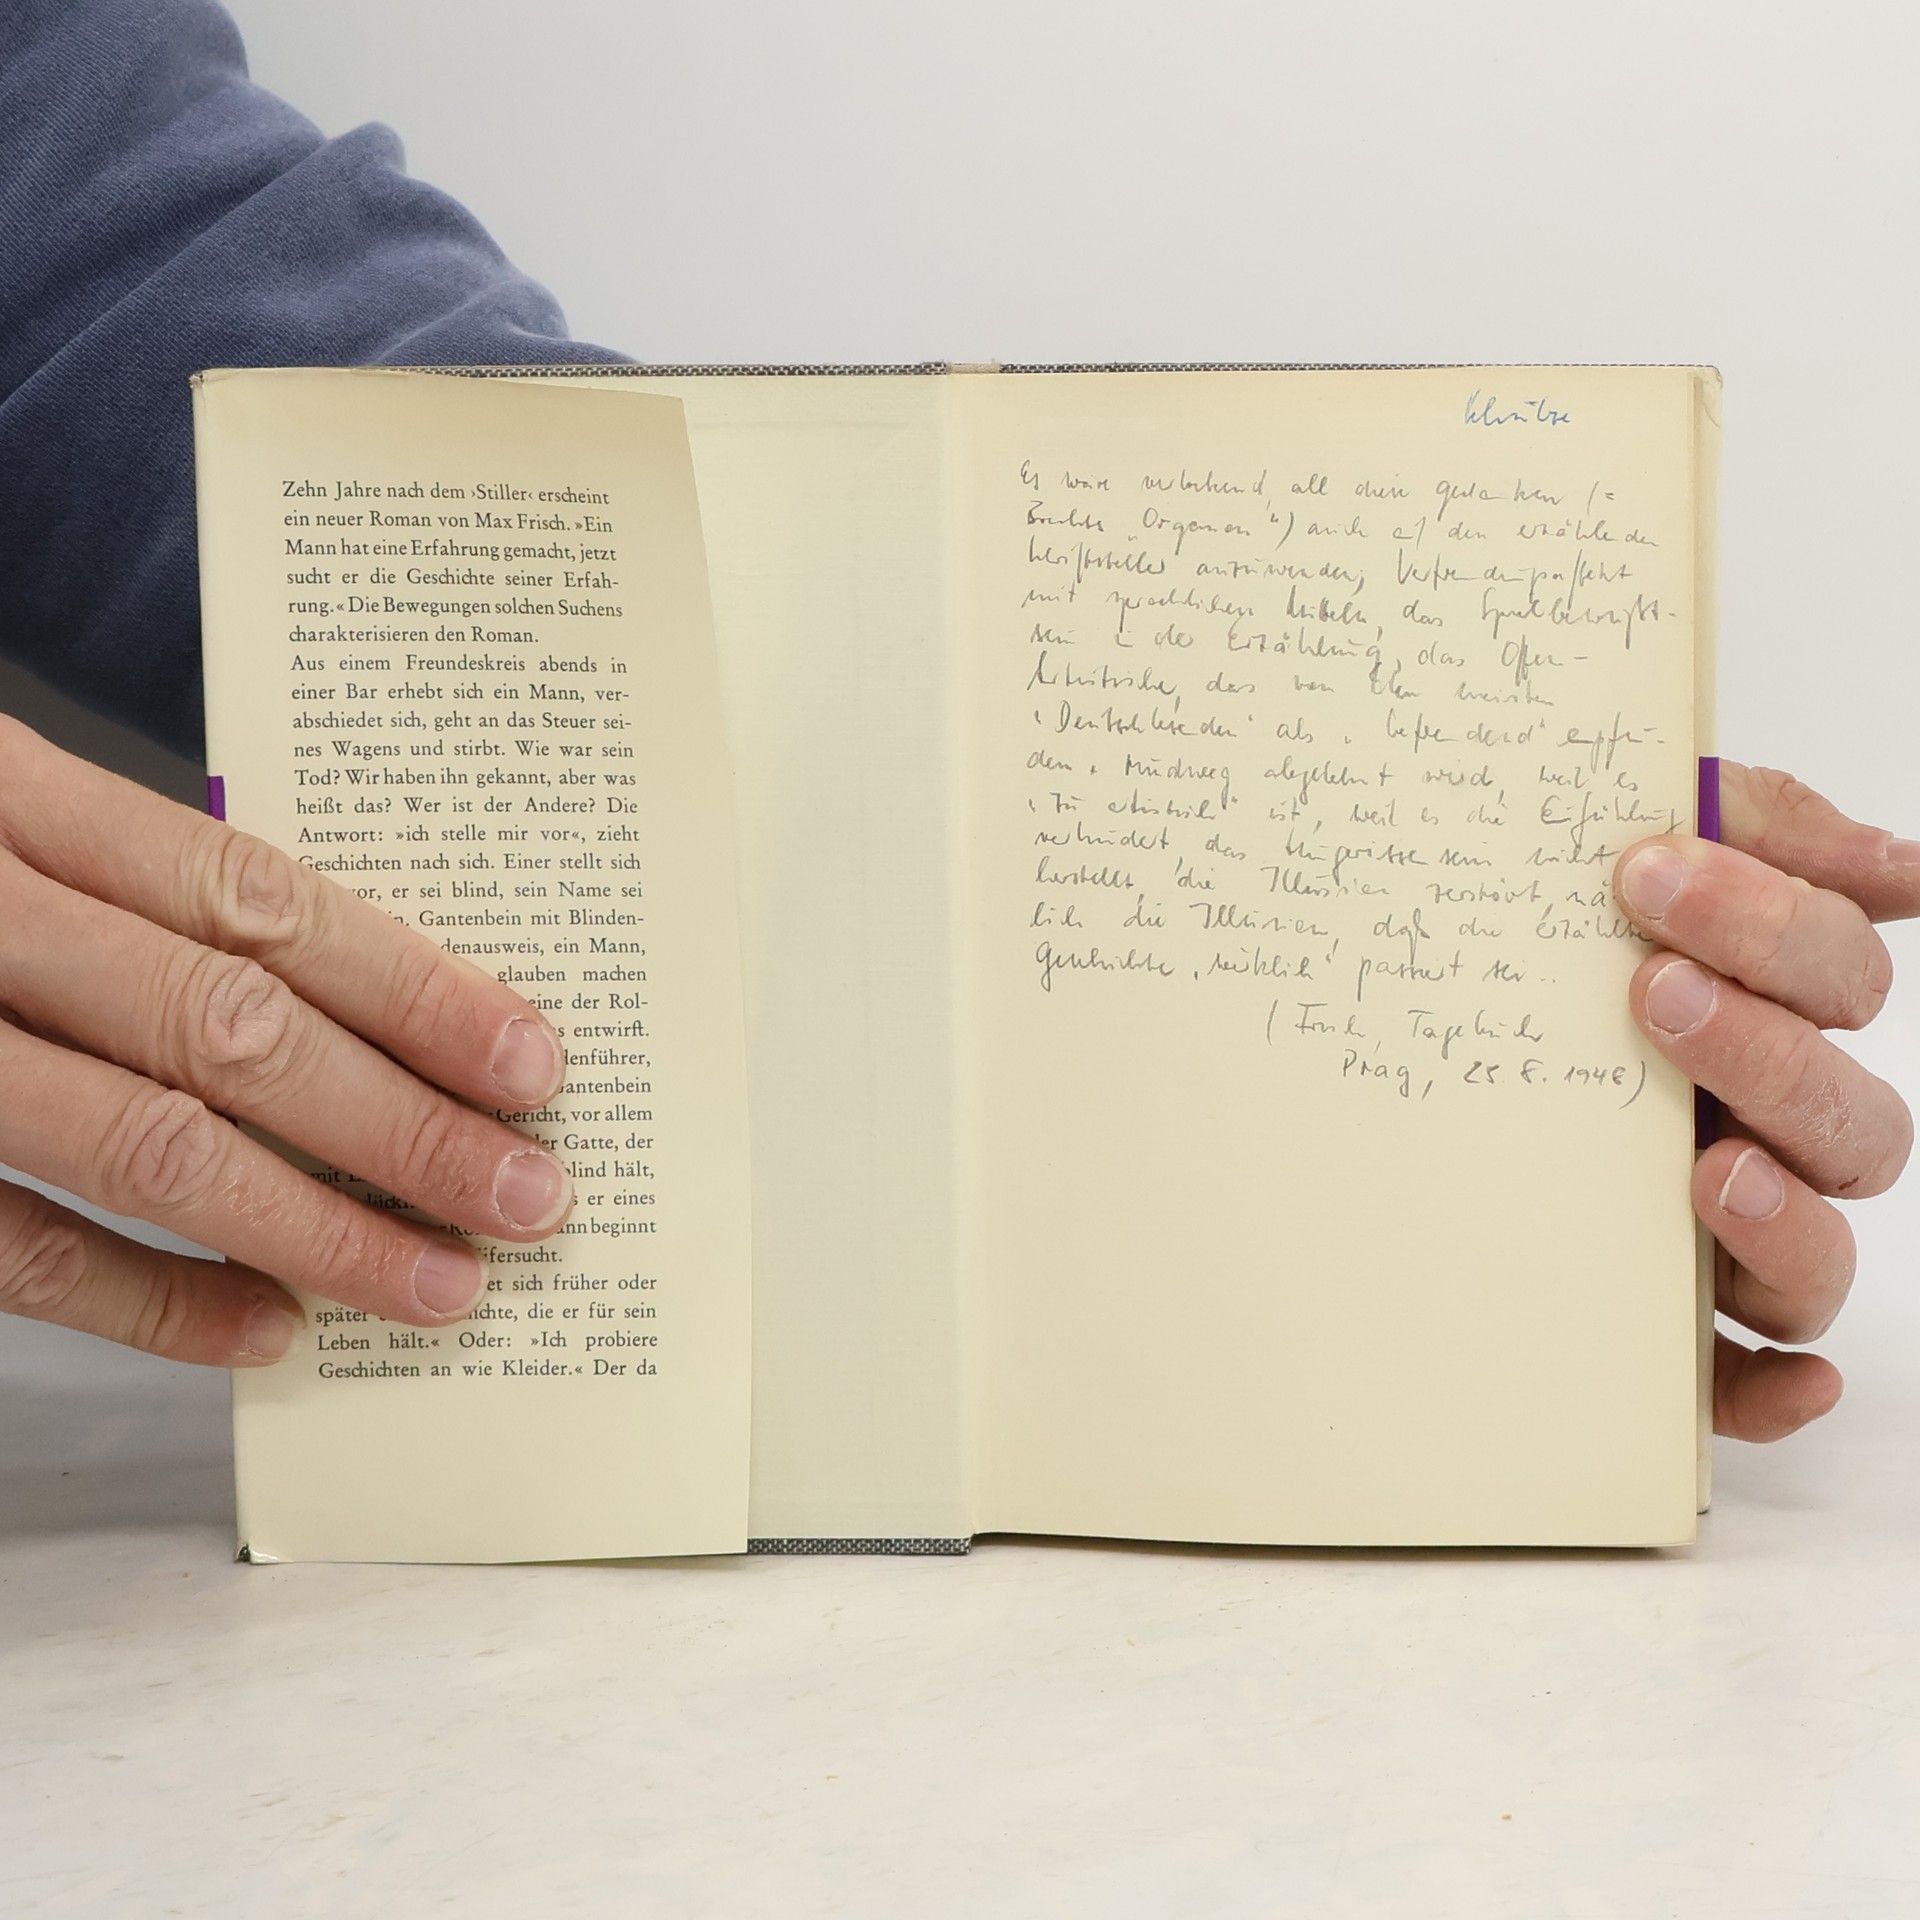 Zehn Jahre nach dem ›Stiller‹ erscheint
ein neuer Roman von Max Frisch. »Ein
Mann hat eine Erfahrung gemacht, jetzt
sucht er die Geschichte seiner Erfah-
rung.« Die Bewegungen solchen Suchens
charakterisieren den Roman.
Aus einem Freundeskreis abends in
einer Bar erhebt sich ein Mann, ver-
abschiedet sich, geht an das Steuer sei-
nes Wagens und stirbt. Wie war sein
Tod? Wir haben ihn gekannt, aber was
heißt das? Wer ist der Andere? Die
Antwort: »ich stelle mir vor«, zieht
Geschichten nach sich. Einer stellt sich
vor, er sei blind, sein Name sei
Gantenbein mit Blinden-
denausweis, ein Mann,
glauben machen
eine der Rol-
entwirft.
denführer,
Gantenbein
Gericht, vor allem
der Gatte, der
mit blind hält,
er eines
beginnt
ifersucht.
et sich früher oder
später ichte, die er für sein
Leben hält.« Oder: »Ich probiere
Geschichten an wie Kleider.« Der da
Es wäre verlockend, all diese Gedanken (=
Brechts "Organon") auch auf den erzählenden
Schriftsteller anzuwenden; Verfremdungseffekt
mit sprachlichen Mitteln, das Spielbewußt-
sein in der Erzählung, das Offen-
Artistische, das von den meisten
"Deutschlesenden" als "befremdend" empfun-
den u. rundweg abgelehnt wird, weil es
"zu artistisch" ist, weil es die Einfühlung
verhindert, das Hingerissensein nicht
herstellt, die Illusion zerstört, nä
lich die Illusion, daß die erzählte
Geschichte "wirklich" passiert sei ..
(Frisch, Tagebuch
Prag, 25. 8. 1948)